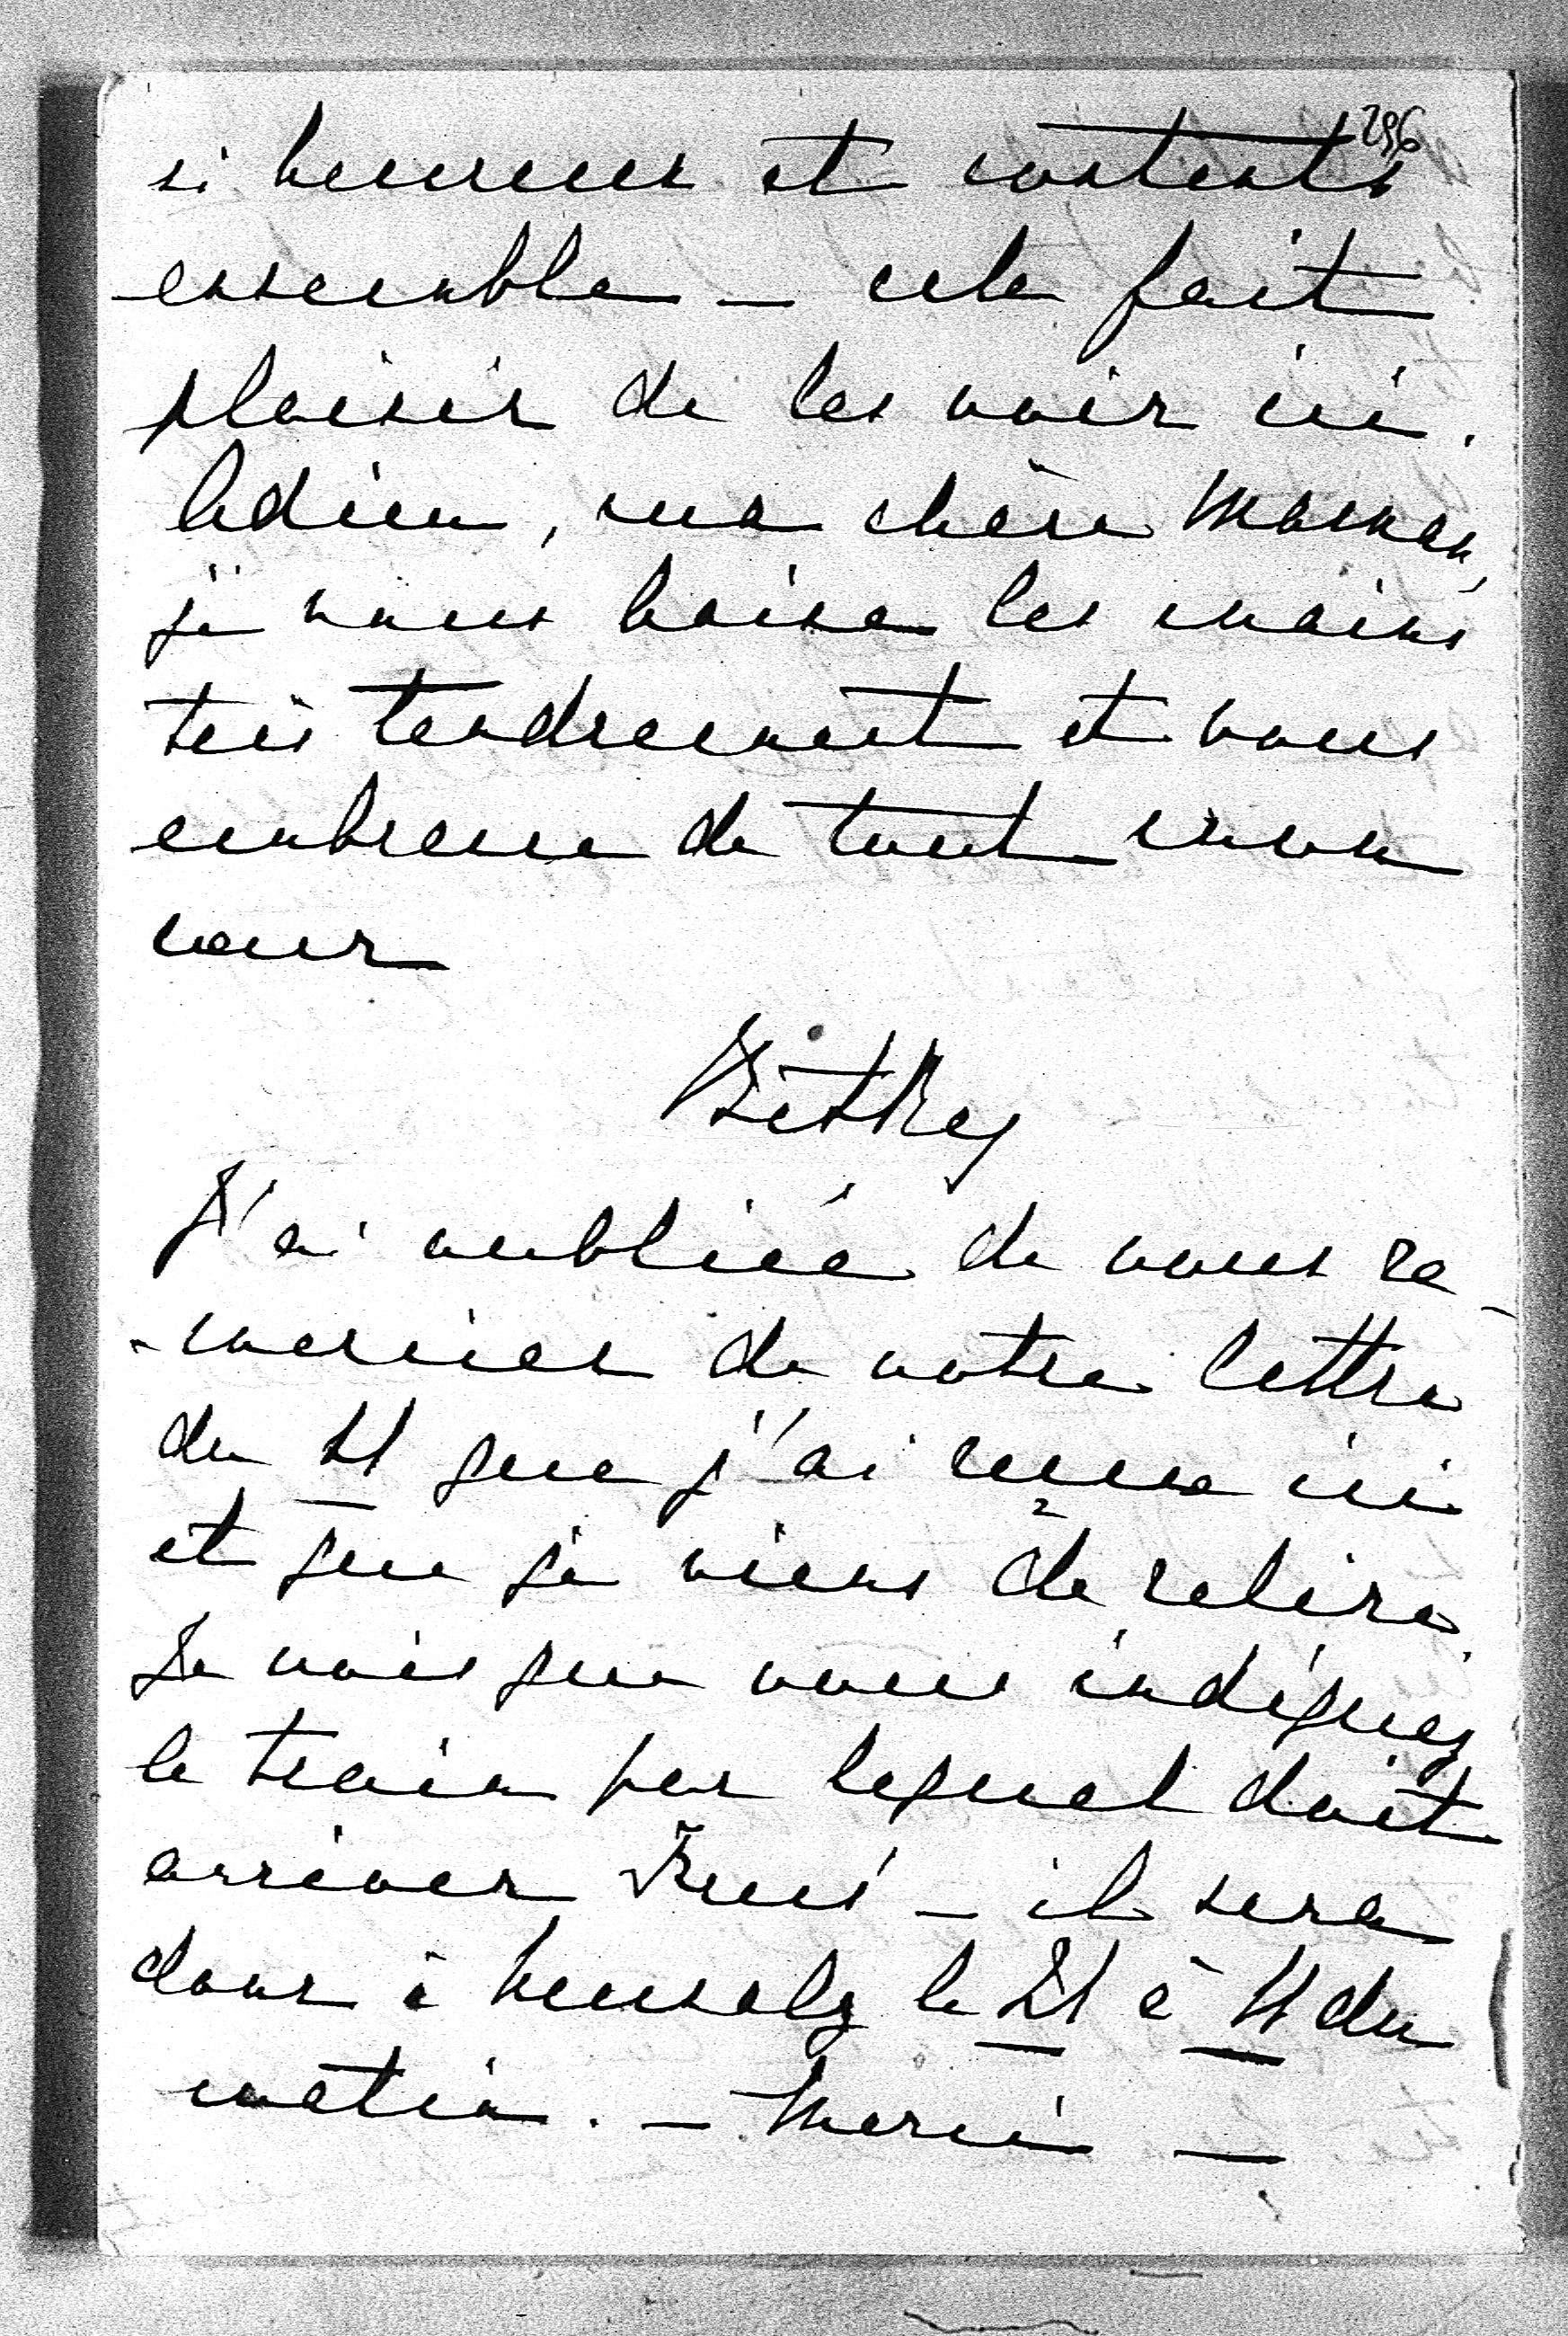 296
si heureux et contents
ensemble – cela fait
plaisir de les voir ici.
Adieu, ma chère Maman,
je vous baise les mains
très tendrement et vous
embrasse de tout mon
cœur
J'ai oubliée de vous re-
-mercier de votre lettre
du 21 que j'ai reçue ici
et que je viens de relire
Je vois que vous indiquez
le train par lequel doit
arriver – il sera
donc à le 21 à 11 du
matin. – Merci –